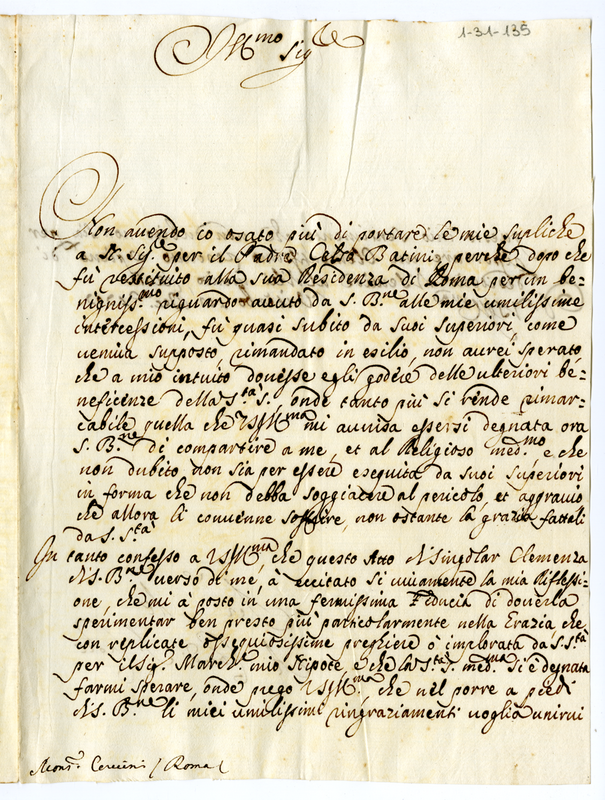 1-31-135
Ill.mo Sig.re
Non avendo io osato più di portare le mie supliche
a N. Sig.re per il Padre Celso Batini, perche dopo che
fù restituito alla sua Residenza di Roma per un be=
nigniss.mo riguardo avuto da S. B.ne alle mie umilissime
intercessioni, fù quasi subito da suoi Superiori, come
veniva supposto, rimandato in esilio, non aurei sperato
che a mio intuito dovesse egli godere delle ulteriori be=
neficenze della S.tà S. onde tanto più si rende rimar=
cabile quella che VS Ill.ma mi avvisa essersi degnata ora
S. B.ne di compartire a me, et al Religioso med.mo, e che
non dubito non sia per essere eseguita da suoi Superiori
in forma che non debba soggiacere al pericolo, et aggravio
che allora li convenne soffrire, non ostante la grazia fattali
da S. S.tà
In tanto confesso a VS Ill.ma che questo Atto di singolar Clemenza
di S. B.ne verso di me, à eccitato si vivamente la mia Riflessi=
one, che mi à posto in una fermissima Fiducia di doverla
sperimentar ben presto più particolarmente nella Grazia, che
con replicate ossequiosissime preghiere ò implorata da S. S.tà
per il Sig.r March.e mio Nipote, e che la S.tà S. med.ma si è degnata
farmi sperare, onde prego VS Ill.ma che nel porre a piedi
di S. B.ne li miei umilissimi ringraziamenti voglia unirvi
Mons.r Cervini / Roma (